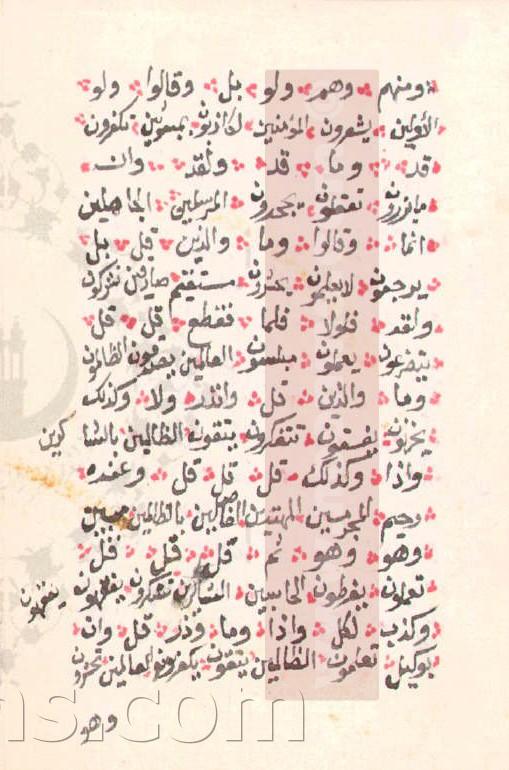 ومنهم وهم ولو بل وقالوا ولو
الأولين يشعرون المؤمنين لكاذبون بمبعوثين تكفرون
قد وما قد ولقد وان
مايزرون تعقلون يجحدون المرسلين الجاهلين
انما وقالوا وما والذين قل بل
يرجعون لايعلمون يحشرون مستقيم صادقين تشركون
ولقد فلولا فلما فقطع قل قل
يتضرعون يعملون مبلسون العالمين يصدفون الظالمون
وما والذين قل وانذر ولا وكذلك
يحزنون يفسقون تتفكرون يتقون الظالمين بالشاكرين
واذا وكذلك قل قل قل وعنده
رحيم المجرمين المهتدين الفاصلين بالظالمين مبين
وهو وهو ثم قل قل قل
تعملون يفرطون الحاسبين الشاكرين تشركون يفقهون يفقهون
وكذب لكل واذا وما وذر قل وان
بوكيل تعلمون الظالمين يتقون يكفرون العالمين تحشرون
وهو
ns.com